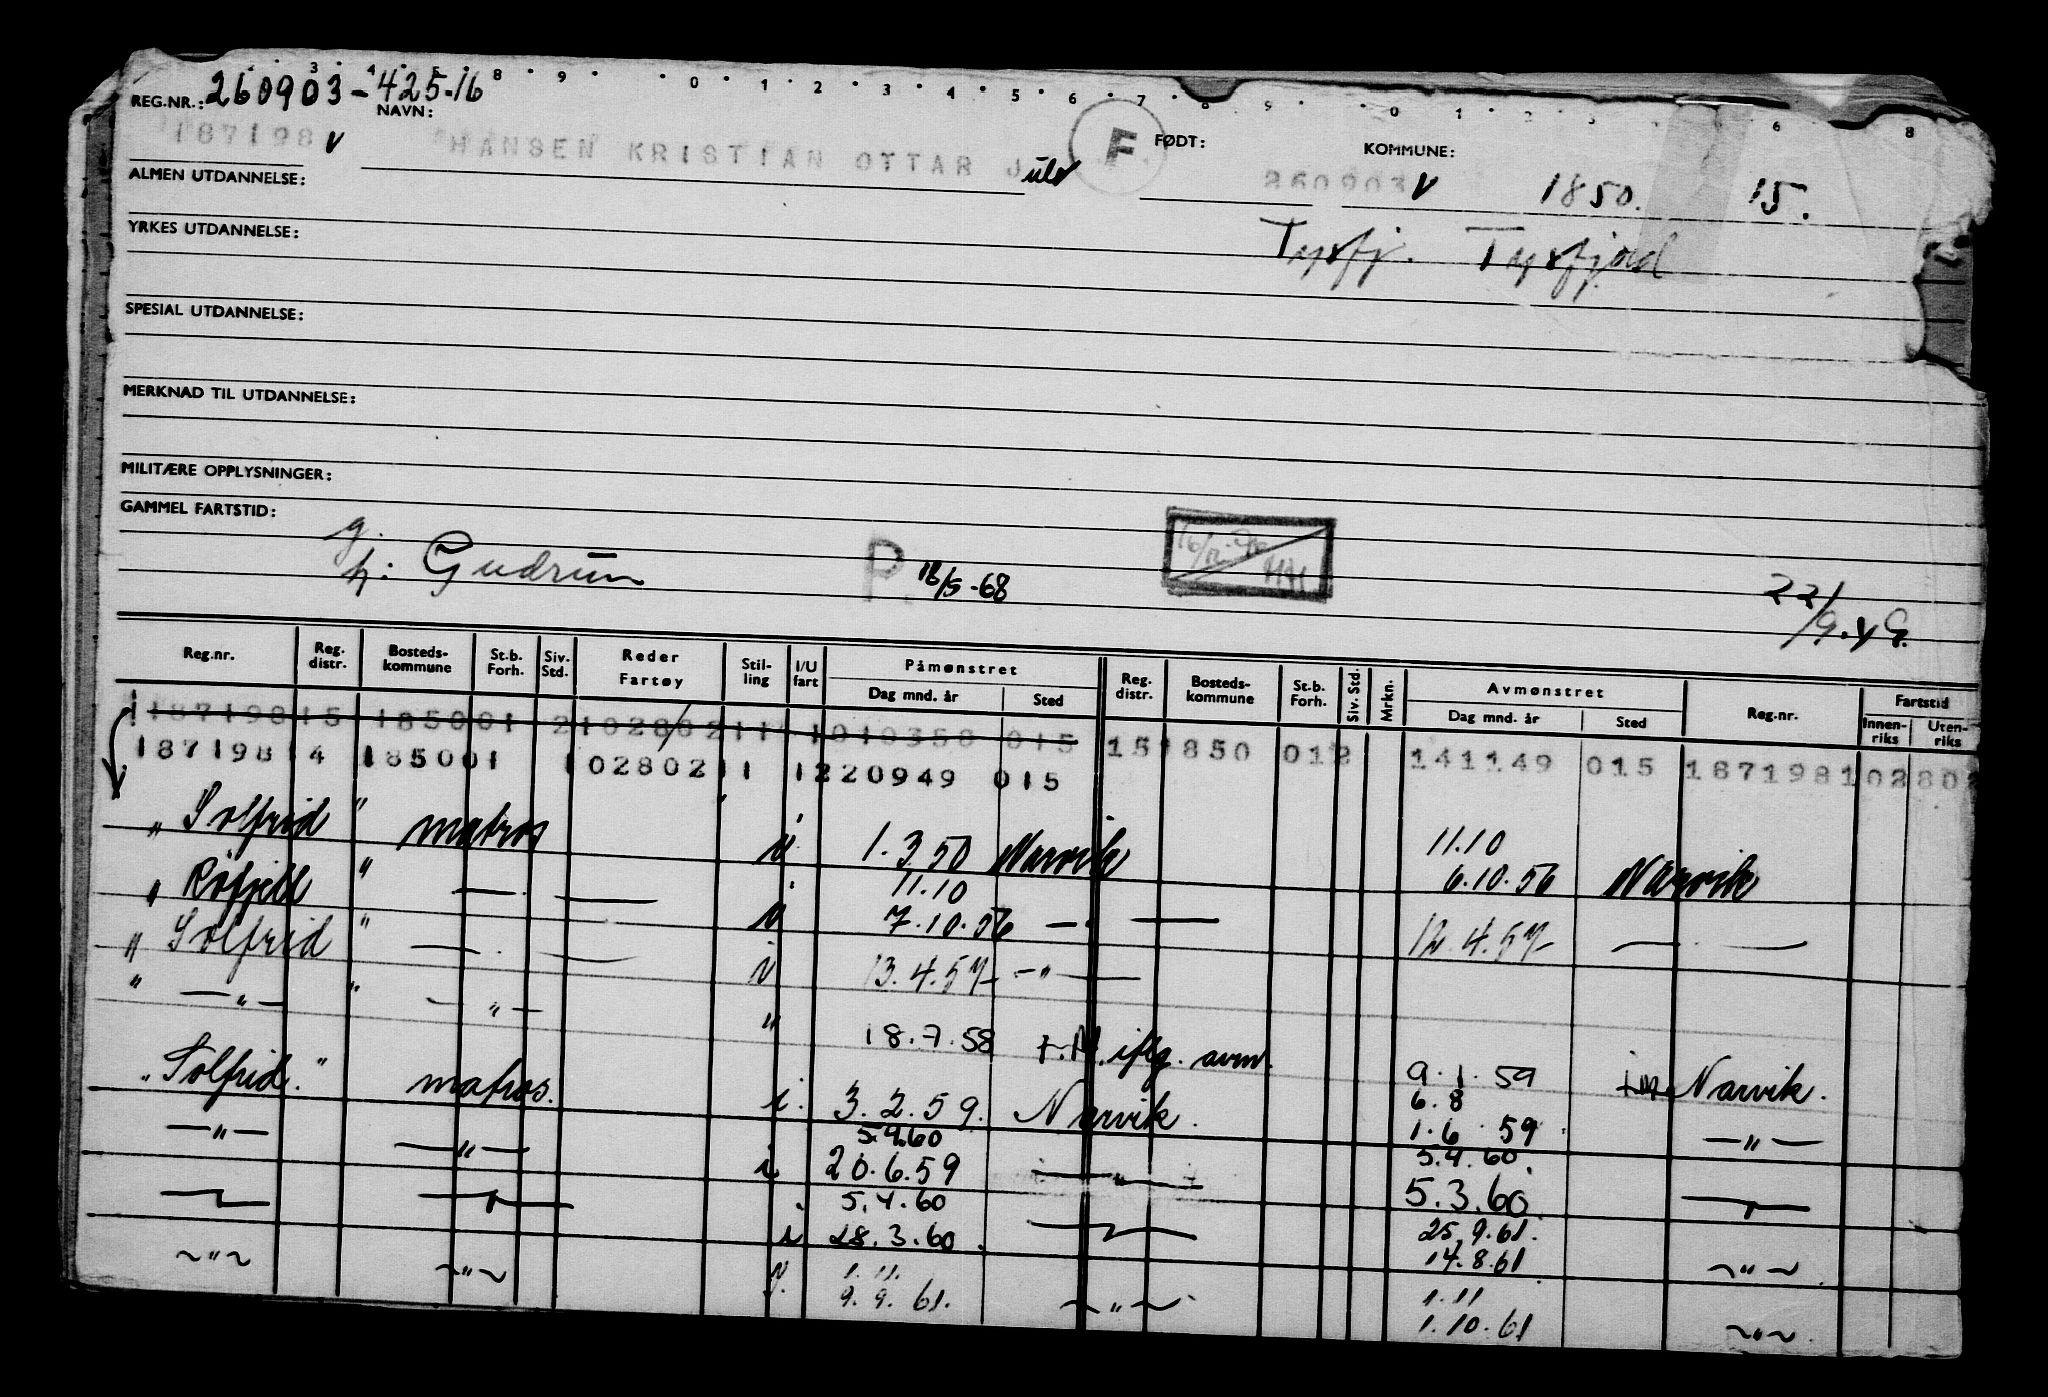 3 4 5 8 9 0 1 2 3 4 5 6 7 8 9 0 1 2 3 6 8
REG.NR.: 260903-425-16
NAVN: FØDT: KOMMUNE:
187198 v HANSEN KRISTIAN OTTAR Jul F 260903 v 1850. 15.
ALMEN UTDANNELSE:
Tysfj. Tysfjord
YRKES UTDANNELSE:
SPESIAL UTDANNELSE:
MERKNAD TIL UTDANNELSE:
MILITÆRE OPPLYSNINGER:
GAMMEL FARTSTID:
g.
h: Gudrun P. 18/9-68
22/9.49.
Reg.nr. Reg. distr. Bosteds-kommune St.b. Forh. Siv. Std. Reder Fartøy Stil-ling I/U fart Påmønstret Reg. distr. Bosteds-kommune St.b. Forh. Siv. Std. Mrkn. Avmønstret Reg.nr. Fartstid
Dag mnd. år Sted Dag mnd. år Sted Innen-riks Uten-riks
187198 15 1850 01 2 102802 11 1 010350 015
187198 14 1850 01 102802 11 1 220949 015 15 1850 01 2 141149 015 187198 102802
" Solfrid " matros i 1.3.50 Narvik 11.10
6.10.56 Narvik
" Röfjell " — — i 11.10
7.10.56 — — 12.4.57 — —
" Solfrid " — — i 13.4.57 —"—
" —"— " —"— " 18.7.58 f.N. iflg. avm. 9.1.59 Narvik.
"Solfrid." matros. i. 3.2.59. Narvik. 6.8
1.6.59 —"—
—"— —"— i 5.9.60
20.6.59 —"— 5.9.60.
5.3.60 —"—
—"— —"— i 5.4.60
28.3.60. —"— 25.9.61.
14.8.61 —"—
—"— —"— 1.11.
9.9.61. —"— 1.11
1.10.61 —"—